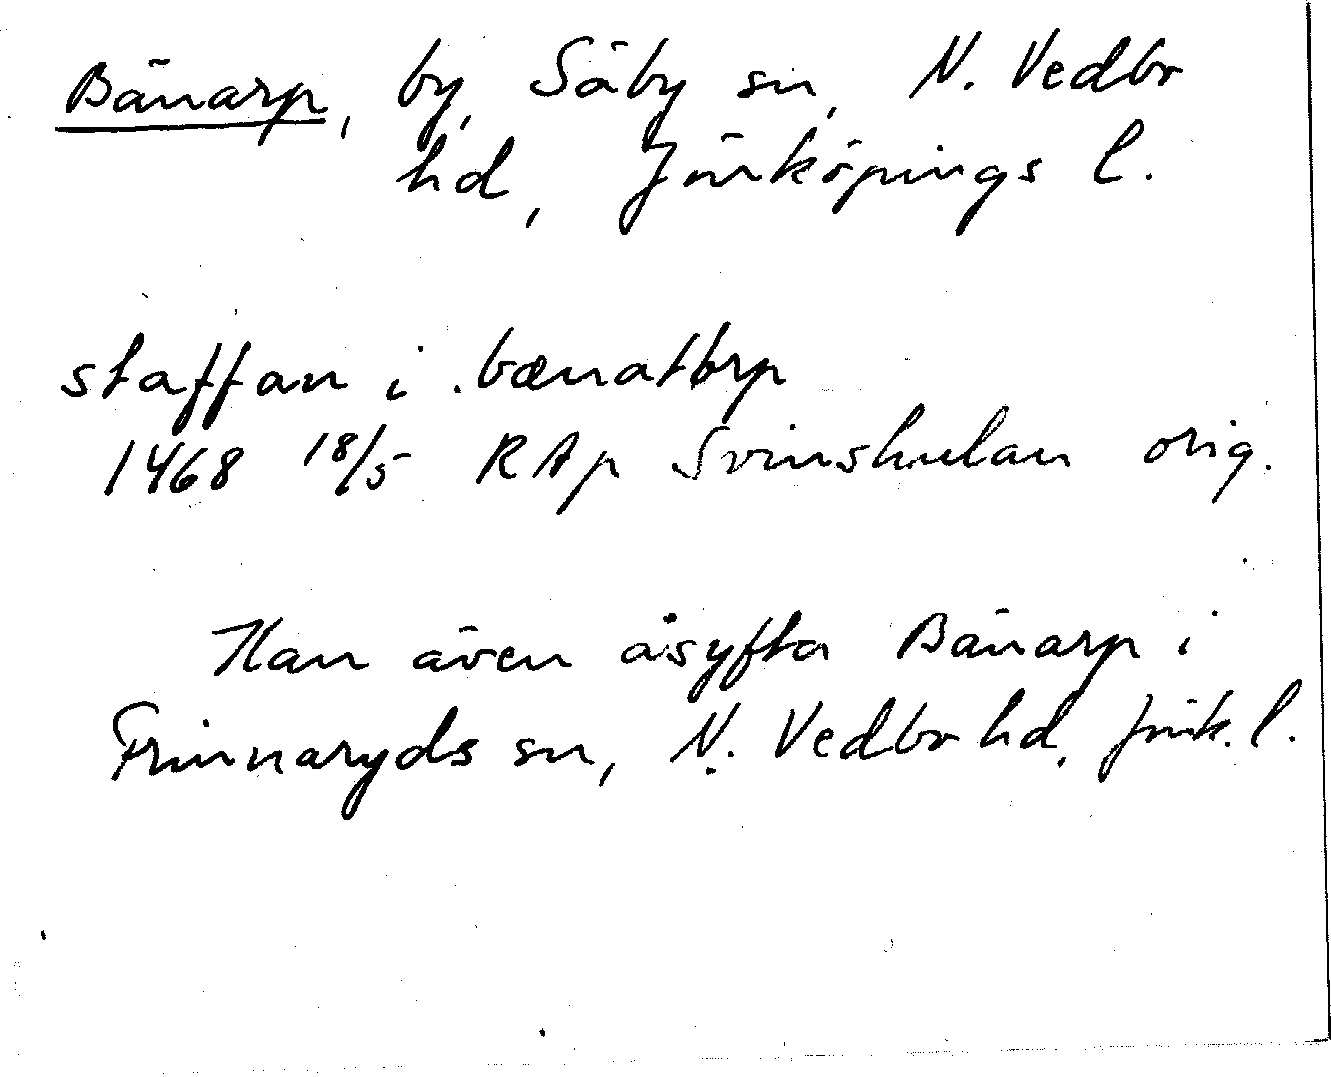 Bänarp, by, Säby sn, N. Vedbo
hd, Jönköpings l.
staffan i bænatorp
1468 18/5 RAp Svinshulan orig.
Kan även åsyfta Bänarp i
Frinnaryds sn, N. Vedbo hd, Jönk. l.